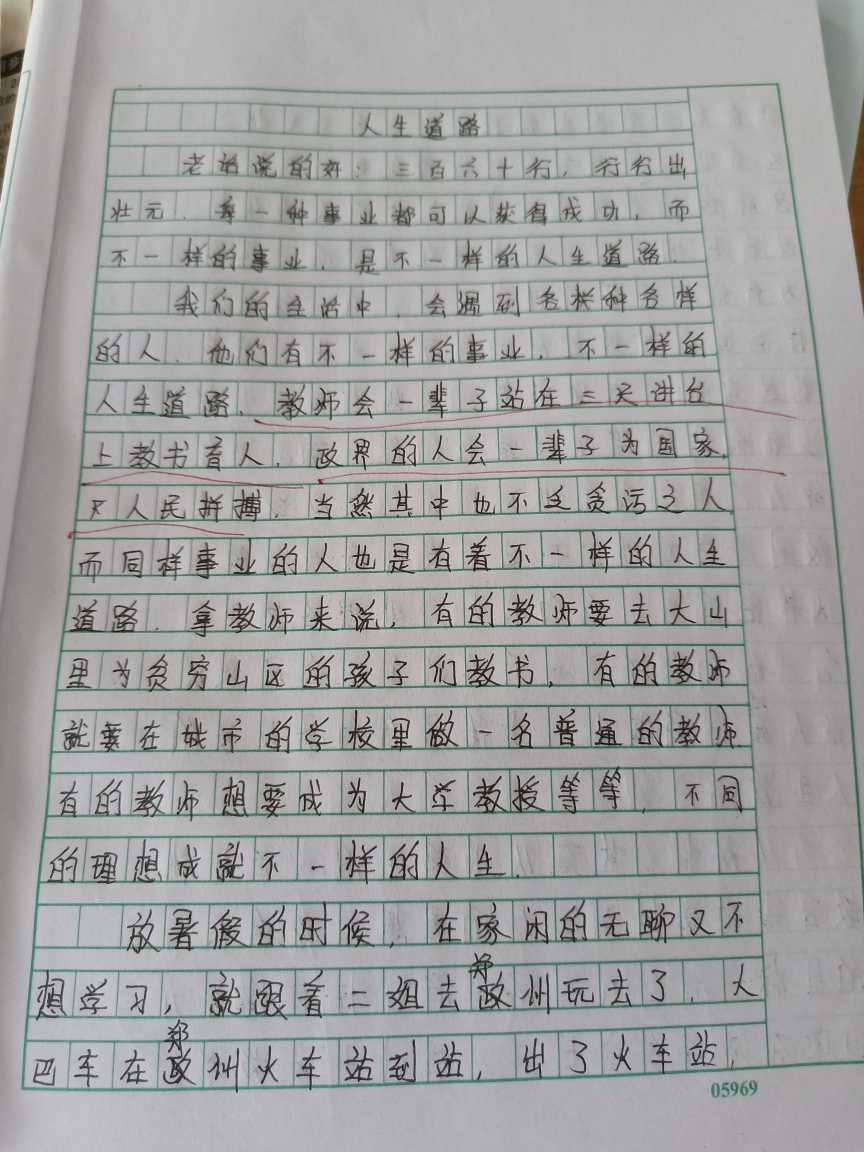 人生道路
老话说的好：三百六十行，行行出
壮元．每一种事业都可以获得成功，而
不一样的事业，是不一样的人生道路．
我们的生活中，会遇到各样种各样
的人．他们有不一样的事业，不一样的
人生道路．教师会一辈子站在三尺讲台
上教书育人，政界的人会一辈子为国家，
人民拼搏．当然其中也不乏贪污之人，
而同样事业的人也是有着不一样的人生
道路．拿教师来说，有的教师要去大山
里为贫穷山区的孩子们教书，有的教师
就要在城市的学校里做一名普通的教师
有的教师想要成为大学教授等等，不同
的理想成就不一样的人生．
放暑假的时候，在家闲的无聊又不
郑
想学习，就跟着二姐去政州玩去了．大
郑
巴车在政州火车站到站，出了火车站，
05969